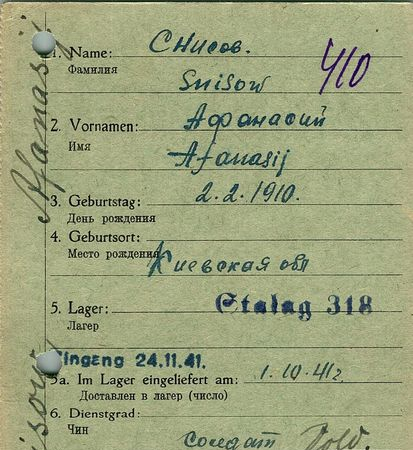 1. Name: Снисов.
Фамилия
Snisow
410
2. Vornamen: Афанасий
Имя
Afanasij
3. Geburtstag: 2.2.1910.
День рождения
4. Geburtsort:
Место рождения Киевская обл
5. Lager: Stalag 318
Лагер
Eingang 24.11.41.
5a. Im Lager eingeliefert am: 1.10.41г.
Доставлен в лагер (число)
6. Dienstgrad:
Чин
солдат Sold.
Afanasij